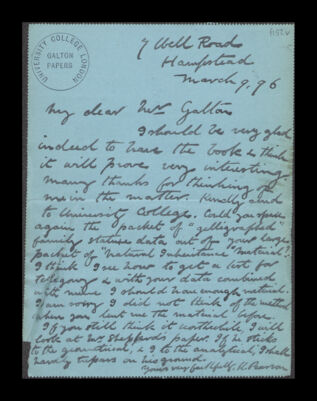 UNIVERSITY COLLEGE LONDON
GALTON
PAPERS
7 Well Road
Hampstead
March 9. 96
My dear Mr Galton
I should be very glad
indeed to have the book & think
it will prove very interesting.
Many thanks for thinking of
me in the matter. Kindly send
to University College. Could you spare
again the packet of "
family stature data out of your large
packet of "Natural Inheritance" material?
I think I see how to get a test for
telegony & with your data combined
with mine I should have enough material.
I am sorry I did not think of the method
when you lent me the material before.
If you still think it worthwhile I will
look at Mr Sheppard's paper. If he sticks
to the geometrical, & I to the analytical, I shall
hardly trespass on his ground.
Yours very faithfully, K. Pearson